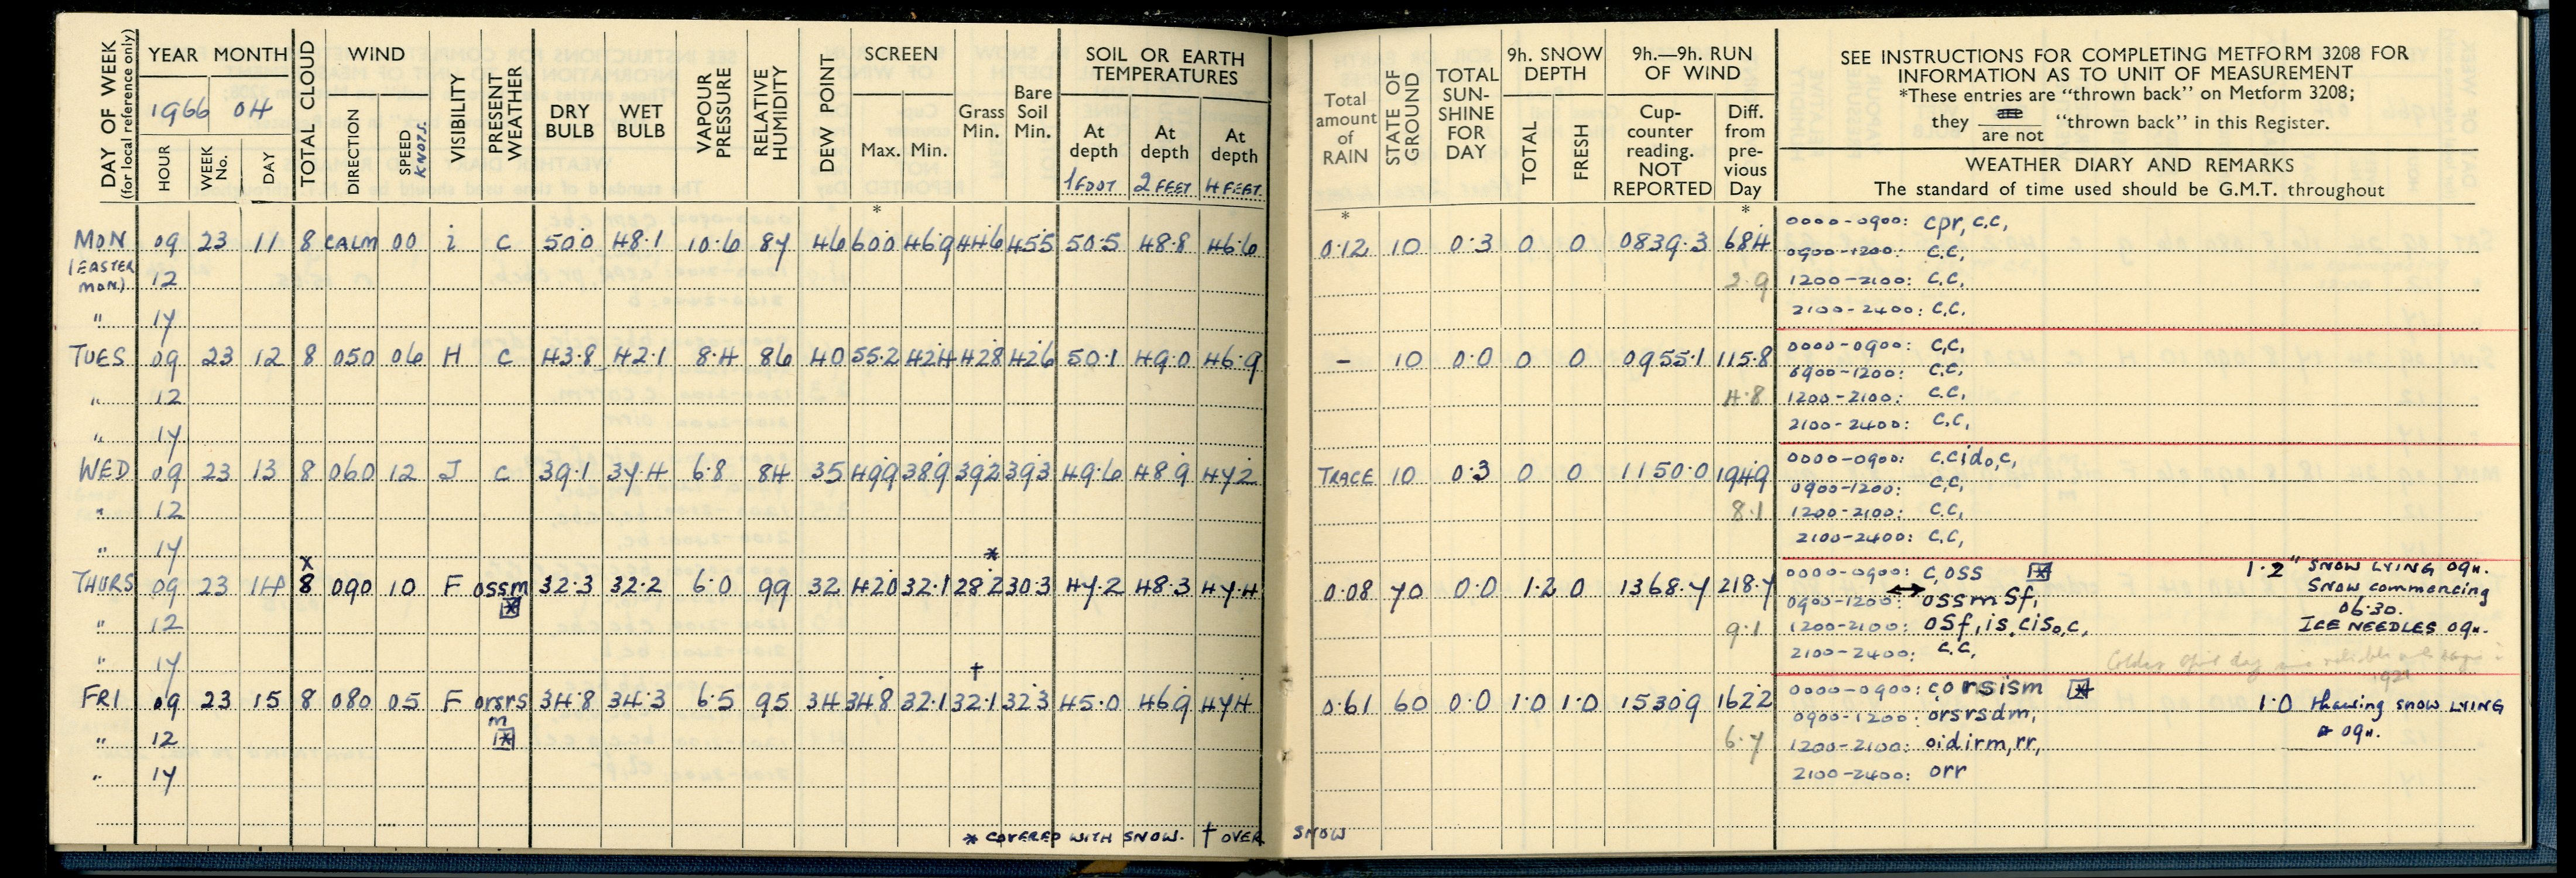 DAY OF WEEK (for local reference only)
YEAR MONTH
1966 04
HOUR WEEK No. DAY
TOTAL CLOUD
WIND
DIRECTION SPEED KNOTS.
VISIBILITY
PRESENT WEATHER
DRY BULB
WET BULB
VAPOUR PRESSURE
RELATIVE HUMIDITY
DEW POINT
SCREEN
Max. Min.
*
Grass Min.
Bare Soil Min.
SOIL OR EARTH TEMPERATURES
At depth 1 FOOT
At depth 2 FEET
At depth 4 FEET.
Total amount of RAIN
*
STATE OF GROUND
TOTAL SUN-SHINE FOR DAY
9h. SNOW DEPTH
TOTAL FRESH
9h.—9h. RUN OF WIND
Cup-counter reading. NOT REPORTED
Diff. from pre-vious Day
*
SEE INSTRUCTIONS FOR COMPLETING METFORM 3208 FOR
INFORMATION AS TO UNIT OF MEASUREMENT
*These entries are “thrown back” on Metform 3208;
they are are not “thrown back” in this Register.
WEATHER DIARY AND REMARKS
The standard of time used should be G.M.T. throughout
MON 09 23 11 8 CALM 00 i c 50.0 48.1 10.6 87 46 60.0 46.9 44.6 45.5 50.5 48.8 46.6 0.12 10 0.3 0 0 0839.3 68.4 0000-0900: cpr, c.c,
(EASTER MON) 12 2.9 0900-1200: c.c,
1200-2100: c.c,
" 17 2100-2400: c.c.
TUES 09 23 12 8 050 06 H c 43.8 42.1 8.4 86 40 55.2 42.4 42.8 42.6 50.1 49.0 46.9 - 10 0.0 0 0 0955.1 115.8 0000-0900: c,c,
0900-1200: c.c,
" 12 4.8 1200-2100: c.c,
" 17 2100-2400: c.c,
WED 09 23 13 8 060 12 J c 39.1 37.4 6.8 84 35 49.9 38.9 39.2 39.3 49.6 48.9 47.2 TRACE 10 0.3 0 0 1150.0 194.9 0000-0900: c.cid₀,c,
0900-1200: c,c,
" 12 8.1 1200-2100: c.c,
" 17 2100-2400: c.c,
x
*
THURS 09 23 14 8 090 10 F ossm 32.3 32.2 6.0 99 32 42.0 32.1 28.2 30.3 47.2 48.3 47.4 0.08 70 0.0 1.2 0 1368.7 218.7 0000-0900: c,oss 1.2" SNOW LYING 09H.
0900-1200: ossmSf, SNOW commencing 06.30.
" 12 9.1 1200-2100: oSf,is,cis₀,c, ICE NEEDLES 09H.
" 17 2100-2400: c.c,
Coldest April day
†
FRI 09 23 15 8 080 05 F orsrs m 34.8 34.3 6.5 95 34 34.8 32.1 32.1 32.3 45.0 46.9 47.4 0.61 60 0.0 1.0 1.0 1530.9 162.2 0000-0900: corsism 1.0 thawing SNOW LYING
0900-1200: orsrsdm, 09H.
" 12 6.7 1200-2100: oidirm,rr,
" 17 2100-2400: orr
* COVERED WITH SNOW. † OVER SNOW